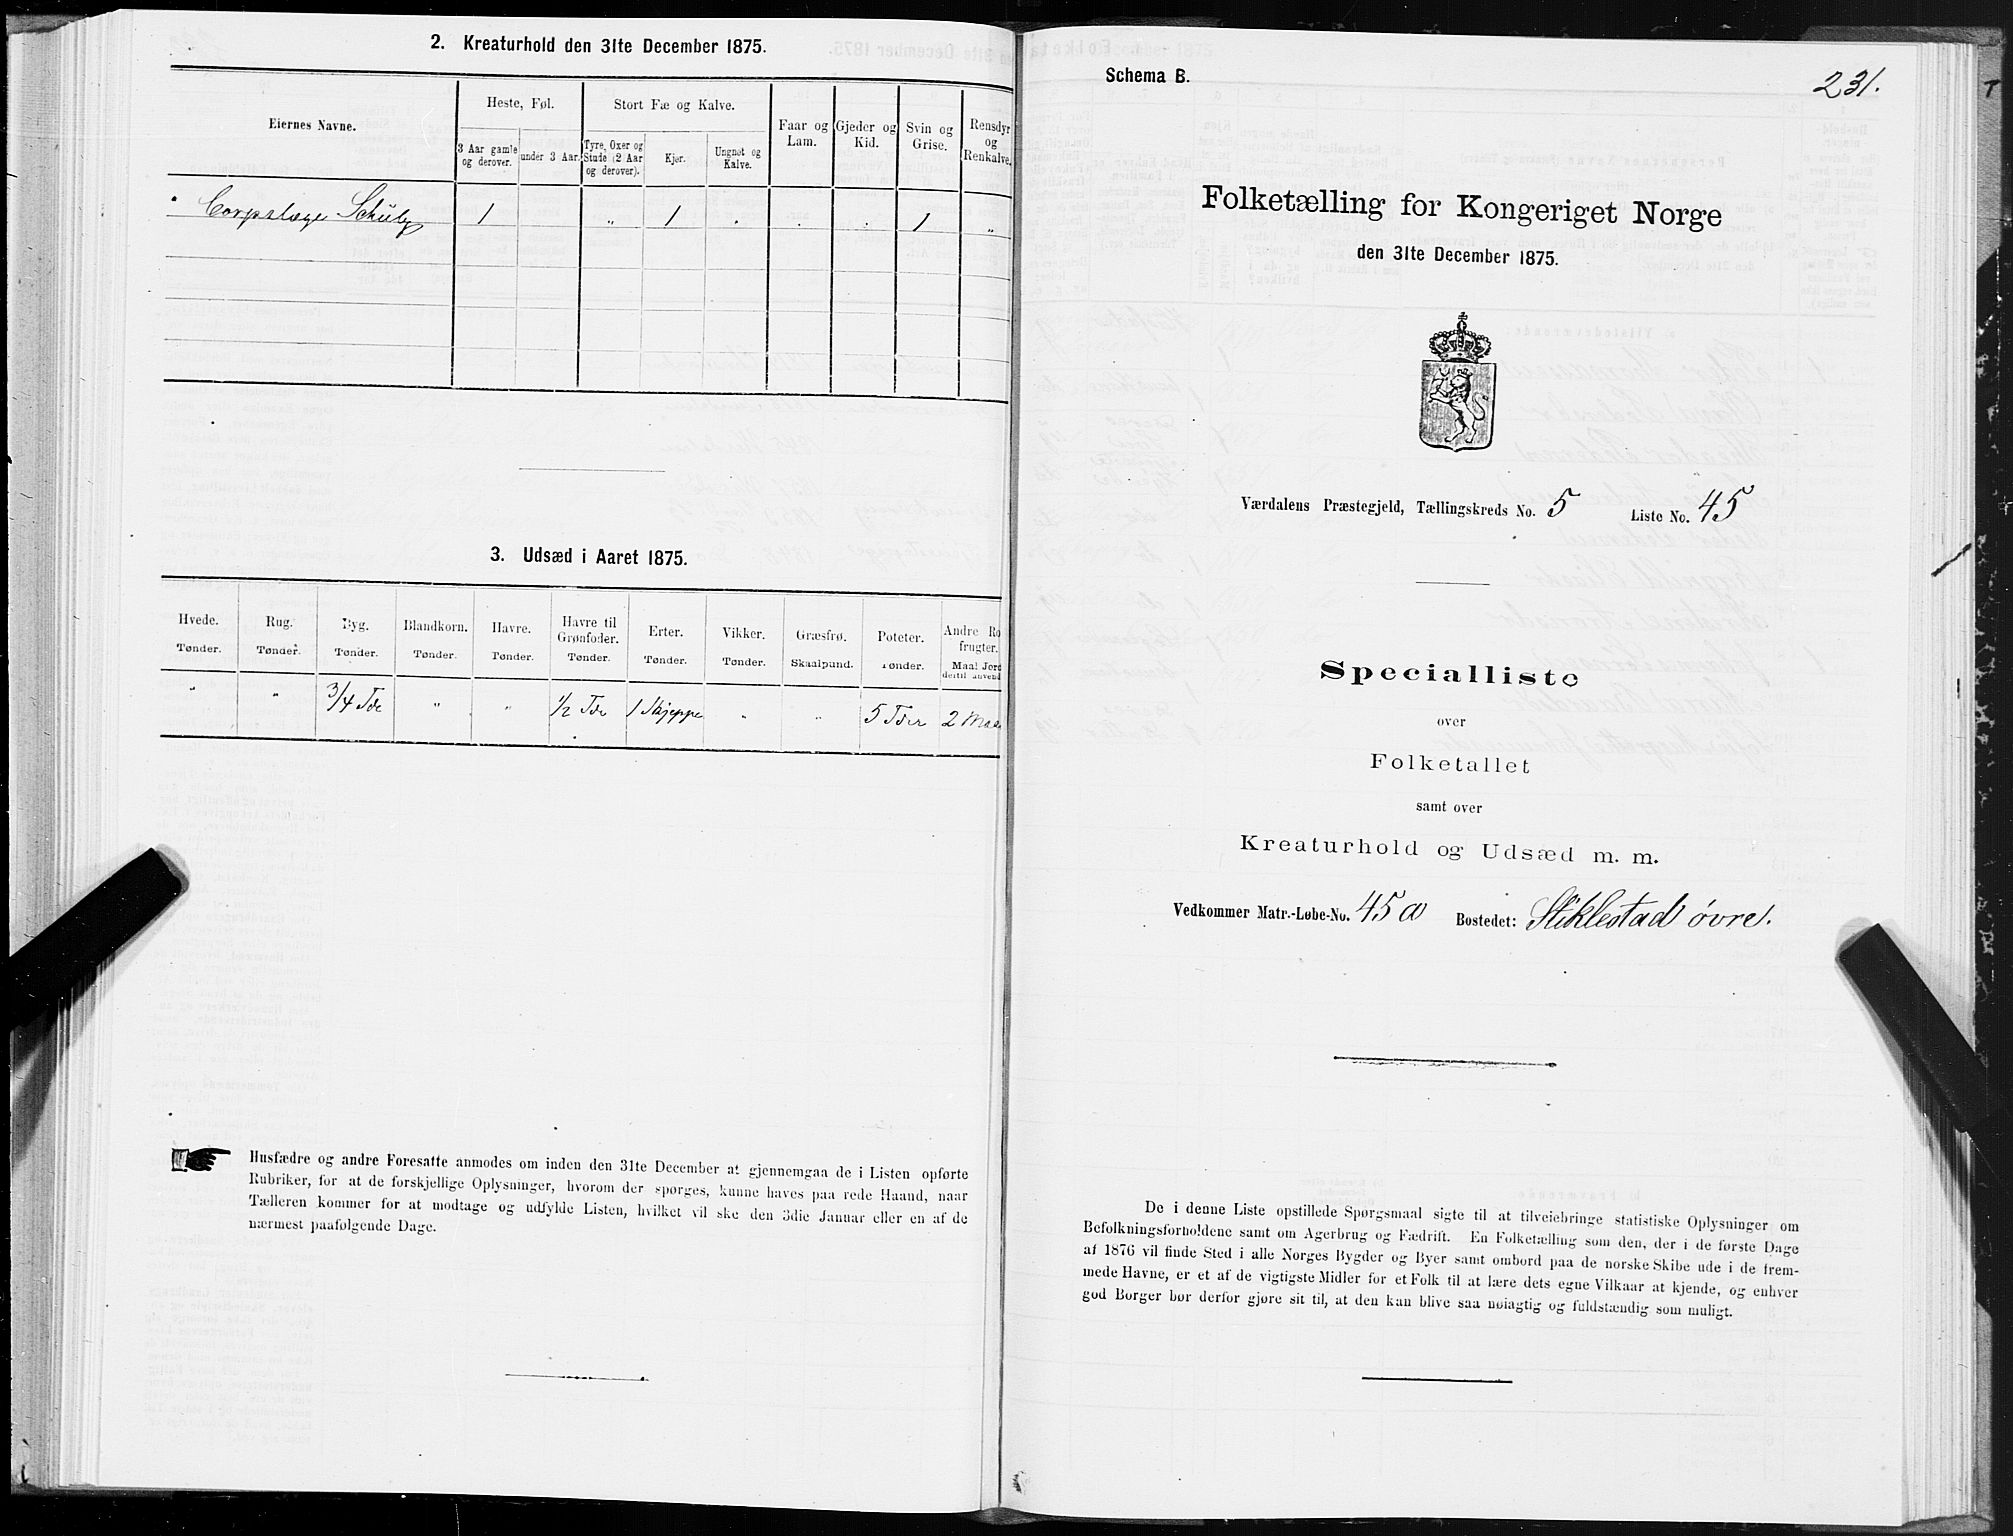 2. Kreaturhold den 31te December 1875.
Eiernes Navne.
Heste, Føl.
Stort Fæ og Kalve.
Faar og Lam.
Gjeder og Kid.
Svin og Grise.
Rensdyr og Renkalve.
3 Aar gamle og derover.
under 3 Aar.
Tyre, Oxer og Stude (2 Aar og derover).
Kjer.
Ungnøt og Kalve.
Corpslæge Schulz 1 " 1 . . . 1 "
3. Udsæd i Aaret 1875.
Hvede. Rug. Byg. Blandkorn. Havre. Havre til Grønfoder. Erter. Vikker. Græsfrø. Poteter. Andre Ro frugter.
Tønder. Tønder. Tønder. Tønder. Tønder. Tønder. Tønder. Tønder. Skaalpund. Tønder. Maal Jord dertil anvend
" " 3/4 Tde " " 1/2 Tde 1 Skjeppe " " 5 Tder 2 Maal
Husfædre og andre Foresatte anmodes om inden den 31te December at gjennemgaa de i Listen opførte
Rubriker, for at de forskjellige Oplysninger, hvorom der spørges, kunne haves paa rede Haand, naar
Tælleren kommer for at modtage og udfylde Listen, hvilket vil ske den 3die Januar eller en af de
nærmest paafølgende Dage.
Schema B.
231.
Folketælling for Kongeriget Norge
den 31te December 1875.
Værdalens Præstegjeld, Tællingskreds No. 5 Liste No. 45
Specialliste
over
Folketallet
samt over
Kreaturhold og Udsæd m. m.
Vedkommer Matr.-Løbe-No. 45a Bostedet: Stiklestad övre.
De i denne Liste opstillede Spørgsmaal sigte til at tilveiebringe statistiske Oplysninger om
Befolkningsforholdene samt om Agerbrug og Fædrift. En Folketælling som den, der i de første Dage
af 1876 vil finde Sted i alle Norges Bygder og Byer samt ombord paa de norske Skibe ude i de frem-
mede Havne, er et af de vigtigste Midler for et Folk til at lære dets egne Vilkaar at kjende, og enhver
god Borger bør derfor gjøre sit til, at den kan blive saa nøiagtig og fuldstændig som muligt.